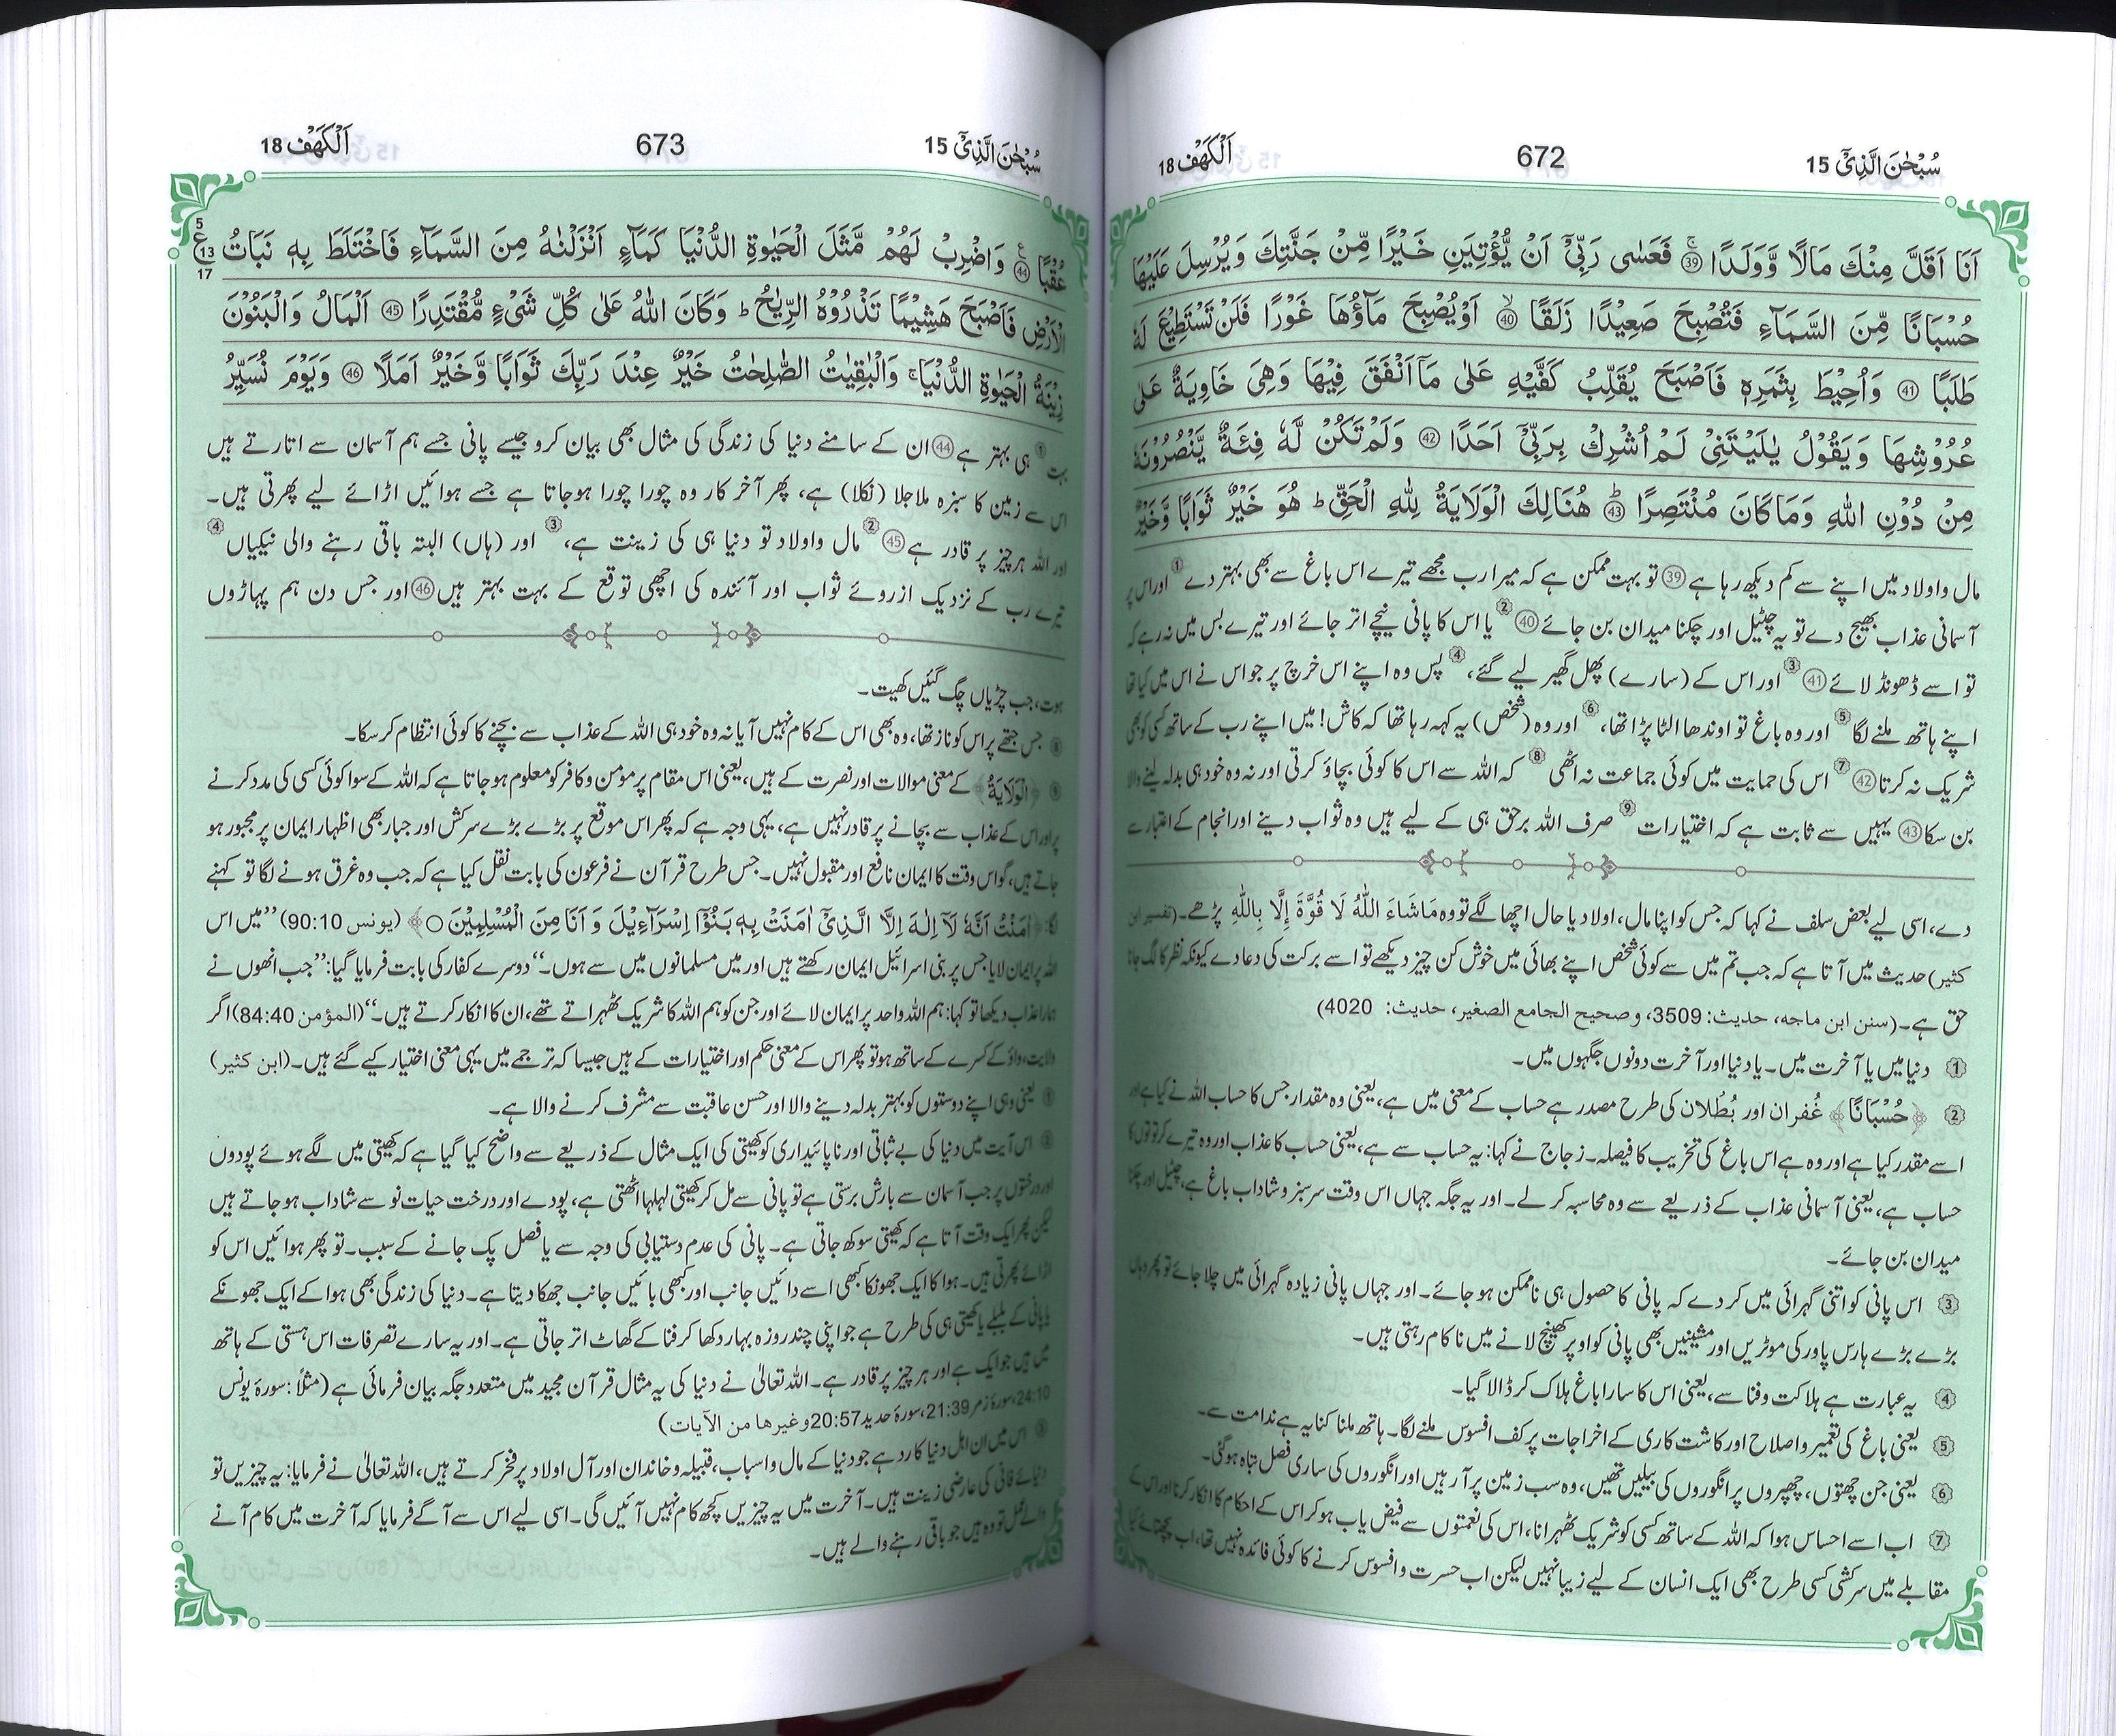 سُبْحٰنَ الَّذِیْۤ 15
672
اَلْكَهْف 18
اَنَا اَقَلَّ مِنْكَ مَالًا وَّوَلَدًا ۚ ﴿39﴾ فَعَسٰى رَبِّیْۤ اَنْ يُّؤْتِيَنِ خَيْرًا مِّنْ جَنَّتِكَ وَيُرْسِلَ عَلَيْهَا
حُسْبَانًا مِّنَ السَّمَآءِ فَتُصْبِحَ صَعِيْدًا زَلَقًا ۙ ﴿40﴾ اَوْ يُصْبِحَ مَآؤُهَا غَوْرًا فَلَنْ تَسْتَطِيْعَ لَهٗ
طَلَبًا ﴿41﴾ وَاُحِيْطَ بِثَمَرِهٖ فَاَصْبَحَ يُقَلِّبُ كَفَّيْهِ عَلٰى مَاۤ اَنْفَقَ فِيْهَا وَهِىَ خَاوِيَةٌ عَلٰى
عُرُوْشِهَا وَيَقُوْلُ يٰلَيْتَنِیْ لَمْ اُشْرِكْ بِرَبِّیْۤ اَحَدًا ﴿42﴾ وَلَمْ تَكُنْ لَّهٗ فِئَةٌ يَّنْصُرُوْنَهٗ
مِنْ دُوْنِ اللّٰهِ وَمَا كَانَ مُنْتَصِرًا ؕ ﴿43﴾ هُنَالِكَ الْوَلَايَةُ لِلّٰهِ الْحَقِّ ؕ هُوَ خَيْرٌ ثَوَابًا وَّخَيْرٌ
مال واولاد میں اپنے سے کم دیکھ رہا ہے (39) تو بہت ممکن ہے کہ میرا رب مجھے تیرے اس باغ سے بھی بہتر دے ① اور اس پر
آسمانی عذاب بھیج دے تو یہ چٹیل اور چکنا میدان بن جائے (40) ② یا اس کا پانی نیچے اتر جائے اور تیرے بس میں نہ رہے کہ
تو اسے ڈھونڈ لائے (41) ③ اور اس کے (سارے) پھل گھیر لیے گئے، ④ پس وہ اپنے اس خرچ پر جو اس نے اس میں کیا تھا
اپنے ہاتھ ملنے لگا ⑤ اور وہ باغ تو اوندھا الٹا پڑا تھا، ⑥ اور وہ (شخص) یہ کہہ رہا تھا کہ کاش! میں اپنے رب کے ساتھ کسی کو بھی
شریک نہ کرتا (42) ⑦ اس کی حمایت میں کوئی جماعت نہ اٹھی ⑧ کہ اللہ سے اس کا کوئی بچاؤ کرتی اور نہ وہ خود ہی بدلہ لینے والا
بن سکا (43) یہیں سے ثابت ہے کہ اختیارات ⑨ صرف اللہ برحق ہی کے لیے ہیں وہ ثواب دینے اور انجام کے اعتبار سے
دے، اسی لیے بعض سلف نے کہا کہ جس کو اپنا مال، اولاد یا حال اچھا لگے تو وہ مَا شَاءَ اللّٰهُ لَا قُوَّةَ إِلَّا بِاللّٰهِ پڑھے۔ (تفسیر ابن
کثیر) حدیث میں آتا ہے کہ جب تم میں سے کوئی شخص اپنے بھائی میں خوش کن چیز دیکھے تو اسے برکت کی دعا دے کیونکہ نظر کا لگ جانا
حق ہے۔ (سنن ابن ماجه، حدیث: 3509، و صحیح الجامع الصغیر، حدیث: 4020)
① دنیا میں یا آخرت میں۔ یا دنیا اور آخرت دونوں جگہوں میں۔
② ﴿حُسْبَانًا﴾ غُفران اور بُطْلان کی طرح مصدر ہے حساب کے معنی میں ہے، یعنی وہ مقدار جس کا حساب اللہ نے کیا ہے اور
اسے مقدر کیا ہے اور وہ ہے اس باغ کی تخریب کا فیصلہ۔ زجاج نے کہا: یہ حساب سے ہے، یعنی حساب کا عذاب اور وہ تیرے کرتوتوں کا
حساب ہے، یعنی آسمانی عذاب کے ذریعے سے وہ محاسبہ کر لے۔ اور یہ جگہ جہاں اس وقت سرسبز و شاداب باغ ہے، چٹیل اور چکنا
میدان بن جائے۔
③ اس پانی کو اتنی گہرائی میں کر دے کہ پانی کا حصول ہی ناممکن ہو جائے۔ اور جہاں پانی زیادہ گہرائی میں چلا جائے تو پھر وہاں
بڑے بڑے ہارس پاور کی موٹریں اور مشینیں بھی پانی کو اوپر کھینچ لانے میں ناکام رہتی ہیں۔
④ یہ عبارت ہے ہلاکت و فنا سے، یعنی اس کا سارا باغ ہلاک کر ڈالا گیا۔
⑤ یعنی باغ کی تعمیر و اصلاح اور کاشت کاری کے اخراجات پر کف افسوس ملنے لگا۔ ہاتھ ملنا کنایہ ہے ندامت سے۔
⑥ یعنی جن چھتوں، چھپروں پر انگوروں کی بیلیں تھیں، وہ سب زمین پر آ رہیں اور انگوروں کی ساری فصل تباہ ہو گئی۔
⑦ اب اسے احساس ہوا کہ اللہ کے ساتھ کسی کو شریک ٹھہرانا، اس کی نعمتوں سے فیض یاب ہو کر اس کے احکام کا انکار کرنا اور اس کے
مقابلے میں سرکشی کسی طرح بھی ایک انسان کے لیے زیبا نہیں لیکن اب حسرت و افسوس کرنے کا کوئی فائدہ نہیں تھا، اب پچھتائے کیا
سُبْحٰنَ الَّذِیْۤ 15
673
اَلْكَهْف 18
عُقْبًا ﴿44﴾ وَاضْرِبْ لَهُمْ مَّثَلَ الْحَيٰوةِ الدُّنْيَا كَمَآءٍ اَنْزَلْنٰهُ مِنَ السَّمَآءِ فَاخْتَلَطَ بِهٖ نَبَاتُ
5 ع 13 17
الْاَرْضِ فَاَصْبَحَ هَشِيْمًا تَذْرُوْهُ الرِّيٰحُ ؕ وَكَانَ اللّٰهُ عَلٰى كُلِّ شَىْءٍ مُّقْتَدِرًا ﴿45﴾ اَلْمَالُ وَالْبَنُوْنَ
زِيْنَةُ الْحَيٰوةِ الدُّنْيَا ۚ وَالْبٰقِيٰتُ الصّٰلِحٰتُ خَيْرٌ عِنْدَ رَبِّكَ ثَوَابًا وَّخَيْرٌ اَمَلًا ﴿46﴾ وَيَوْمَ نُسَيِّرُ
بہت ① ہی بہتر ہے (44) ان کے سامنے دنیا کی زندگی کی مثال بھی بیان کرو جیسے پانی جسے ہم آسمان سے اتارتے ہیں
اس سے زمین کا سبزہ ملا جلا (نکلا) ہے، پھر آخر کار وہ چورا چورا ہو جاتا ہے جسے ہوائیں اڑائے لیے پھرتی ہیں۔
اور اللہ ہر چیز پر قادر ہے (45) ② مال و اولاد تو دنیا ہی کی زینت ہے، ③ اور (ہاں) البتہ باقی رہنے والی نیکیاں ④
تیرے رب کے نزدیک ازروئے ثواب اور آئندہ کی اچھی توقع کے بہت بہتر ہیں (46) اور جس دن ہم پہاڑوں
ہوت، جب چڑیاں چگ گئیں کھیت۔
⑧ جس جتھے پر اس کو ناز تھا، وہ بھی اس کے کام نہیں آیا نہ وہ خود ہی اللہ کے عذاب سے بچنے کا کوئی انتظام کر سکا۔
⑨ ﴿الْوَلَايَةُ﴾ کے معنی موالات اور نصرت کے ہیں، یعنی اس مقام پر مومن و کافر کو معلوم ہو جاتا ہے کہ اللہ کے سوا کوئی کسی کی مدد کرنے
پر اور اس کے عذاب سے بچانے پر قادر نہیں ہے، یہی وجہ ہے کہ پھر اس موقع پر بڑے بڑے سرکش اور جبار بھی اظہار ایمان پر مجبور ہو
جاتے ہیں، گو اس وقت کا ایمان نافع اور مقبول نہیں۔ جس طرح قرآن نے فرعون کی بابت نقل کیا ہے کہ جب وہ غرق ہونے لگا تو کہنے
لگا: ﴿اٰمَنْتُ اَنَّهٗ لَاۤ اِلٰهَ اِلَّا الَّذِیْۤ اٰمَنَتْ بِهٖ بَنُوْۤا اِسْرَآءِيْلَ وَ اَنَا مِنَ الْمُسْلِمِيْنَ ○﴾ (یونس 90:10) ”میں اس
اللہ پر ایمان لایا جس پر بنی اسرائیل ایمان رکھتے ہیں اور میں مسلمانوں میں سے ہوں۔“ دوسرے کفار کی بابت فرمایا گیا: ”جب انھوں نے
ہمارا عذاب دیکھا تو کہا: ہم اللہ واحد پر ایمان لائے اور جن کو ہم اللہ کا شریک ٹھہراتے تھے، ان کا انکار کرتے ہیں۔“ (المؤمن 84:40) اگر
ولایت، واؤ کے کسرے کے ساتھ ہو تو پھر اس کے معنی حکم اور اختیارات کے ہیں جیسا کہ ترجمے میں یہی معنی اختیار کیے گئے ہیں۔ (ابن کثیر)
① یعنی وہی اپنے دوستوں کو بہتر بدلہ دینے والا اور حسن عاقبت سے مشرف کرنے والا ہے۔
② اس آیت میں دنیا کی بے ثباتی اور ناپائیداری کو کھیتی کی ایک مثال کے ذریعے سے واضح کیا گیا ہے کہ کھیتی میں لگے ہوئے پودوں
اور درختوں پر جب آسمان سے بارش برستی ہے تو پانی سے مل کر کھیتی لہلہا اٹھتی ہے، پودے اور درخت حیات نو سے شاداب ہو جاتے ہیں
لیکن پھر ایک وقت آتا ہے کہ کھیتی سوکھ جاتی ہے۔ پانی کی عدم دستیابی کی وجہ سے یا فصل پک جانے کے سبب۔ تو پھر ہوائیں اس کو
اڑائے پھرتی ہیں۔ ہوا کا ایک جھونکا کبھی اسے دائیں جانب اور کبھی بائیں جانب جھکا دیتا ہے۔ دنیا کی زندگی بھی ہوا کے ایک جھونکے
یا پانی کے بلبلے یا کھیتی ہی کی طرح ہے جو اپنی چند روزہ بہار دکھا کر فنا کے گھاٹ اتر جاتی ہے۔ اور یہ سارے تصرفات اس ہستی کے ہاتھ
میں ہیں جو ایک ہے اور ہر چیز پر قادر ہے۔ اللہ تعالیٰ نے دنیا کی یہ مثال قرآن مجید میں متعدد جگہ بیان فرمائی ہے (مثلاً: سورۂ یونس
24:10، سورۂ زمر 21:39، سورۂ حدید 20:57 و غیرها من الآیات)
③ اس میں ان اہل دنیا کا رد ہے جو دنیا کے مال و اسباب، قبیلہ و خاندان اور آل اولاد پر فخر کرتے ہیں، اللہ تعالیٰ نے فرمایا: یہ چیزیں تو
دنیائے فانی کی عارضی زینت ہیں۔ آخرت میں یہ چیزیں کچھ کام نہیں آئیں گی۔ اسی لیے اس سے آگے فرمایا کہ آخرت میں کام آنے
والے عمل تو وہ ہیں جو باقی رہنے والے ہیں۔